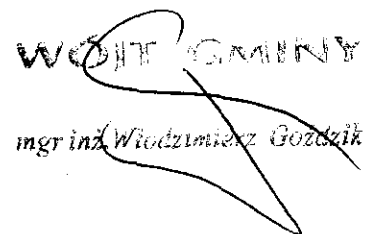 WÓJT GMINY
mgr inż. Włodzimierz Goździk